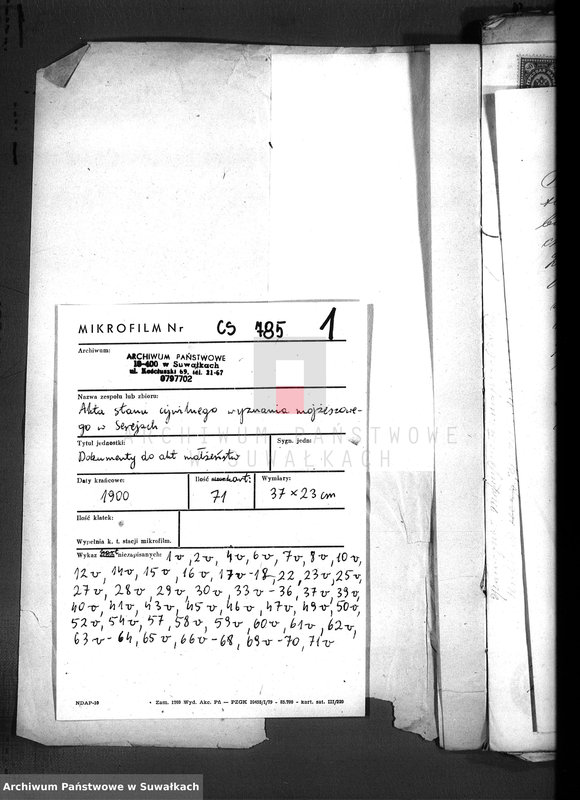 MIKROFILM Nr CS 785 1
Archiwum:
ARCHIWUM PAŃSTWOWE
16-400 w Suwałkach
ul. Kościuszki 69, tel. 21-67
0797702
Nazwa zespołu lub zbioru:
Akta stanu cywilnego wyznania mojżeszowe-
go w Serejach
Tytuł jednostki:
Sygn. jedn:
Dokumenty do akt małżeństw
Daty krańcowe:
Ilość kart:
Wymiary:
1900
71
37 × 23 cm
Ilość klatek:
Wypełnia k. t. stacji mikrofilm.
Wykaz kart niezapisanych: 1v, 2v, 4v, 6v, 7v, 8v, 10v,
12v, 14v, 15v, 16v, 17v-18, 22, 23v, 25v,
27v, 28v, 29v, 30v, 33v-36, 37v, 39v,
40v, 41v, 43v, 45v, 46v, 47v, 49v, 50v,
52v, 54v, 57, 58v, 59v, 60v, 61v, 62v,
63v-64, 65v, 66v-68, 69v-70, 71v
NDAP-10
ARCHIWUM PAŃSTWOWE
W SUWAŁKACH
Archiwum Państwowe w Suwałkach